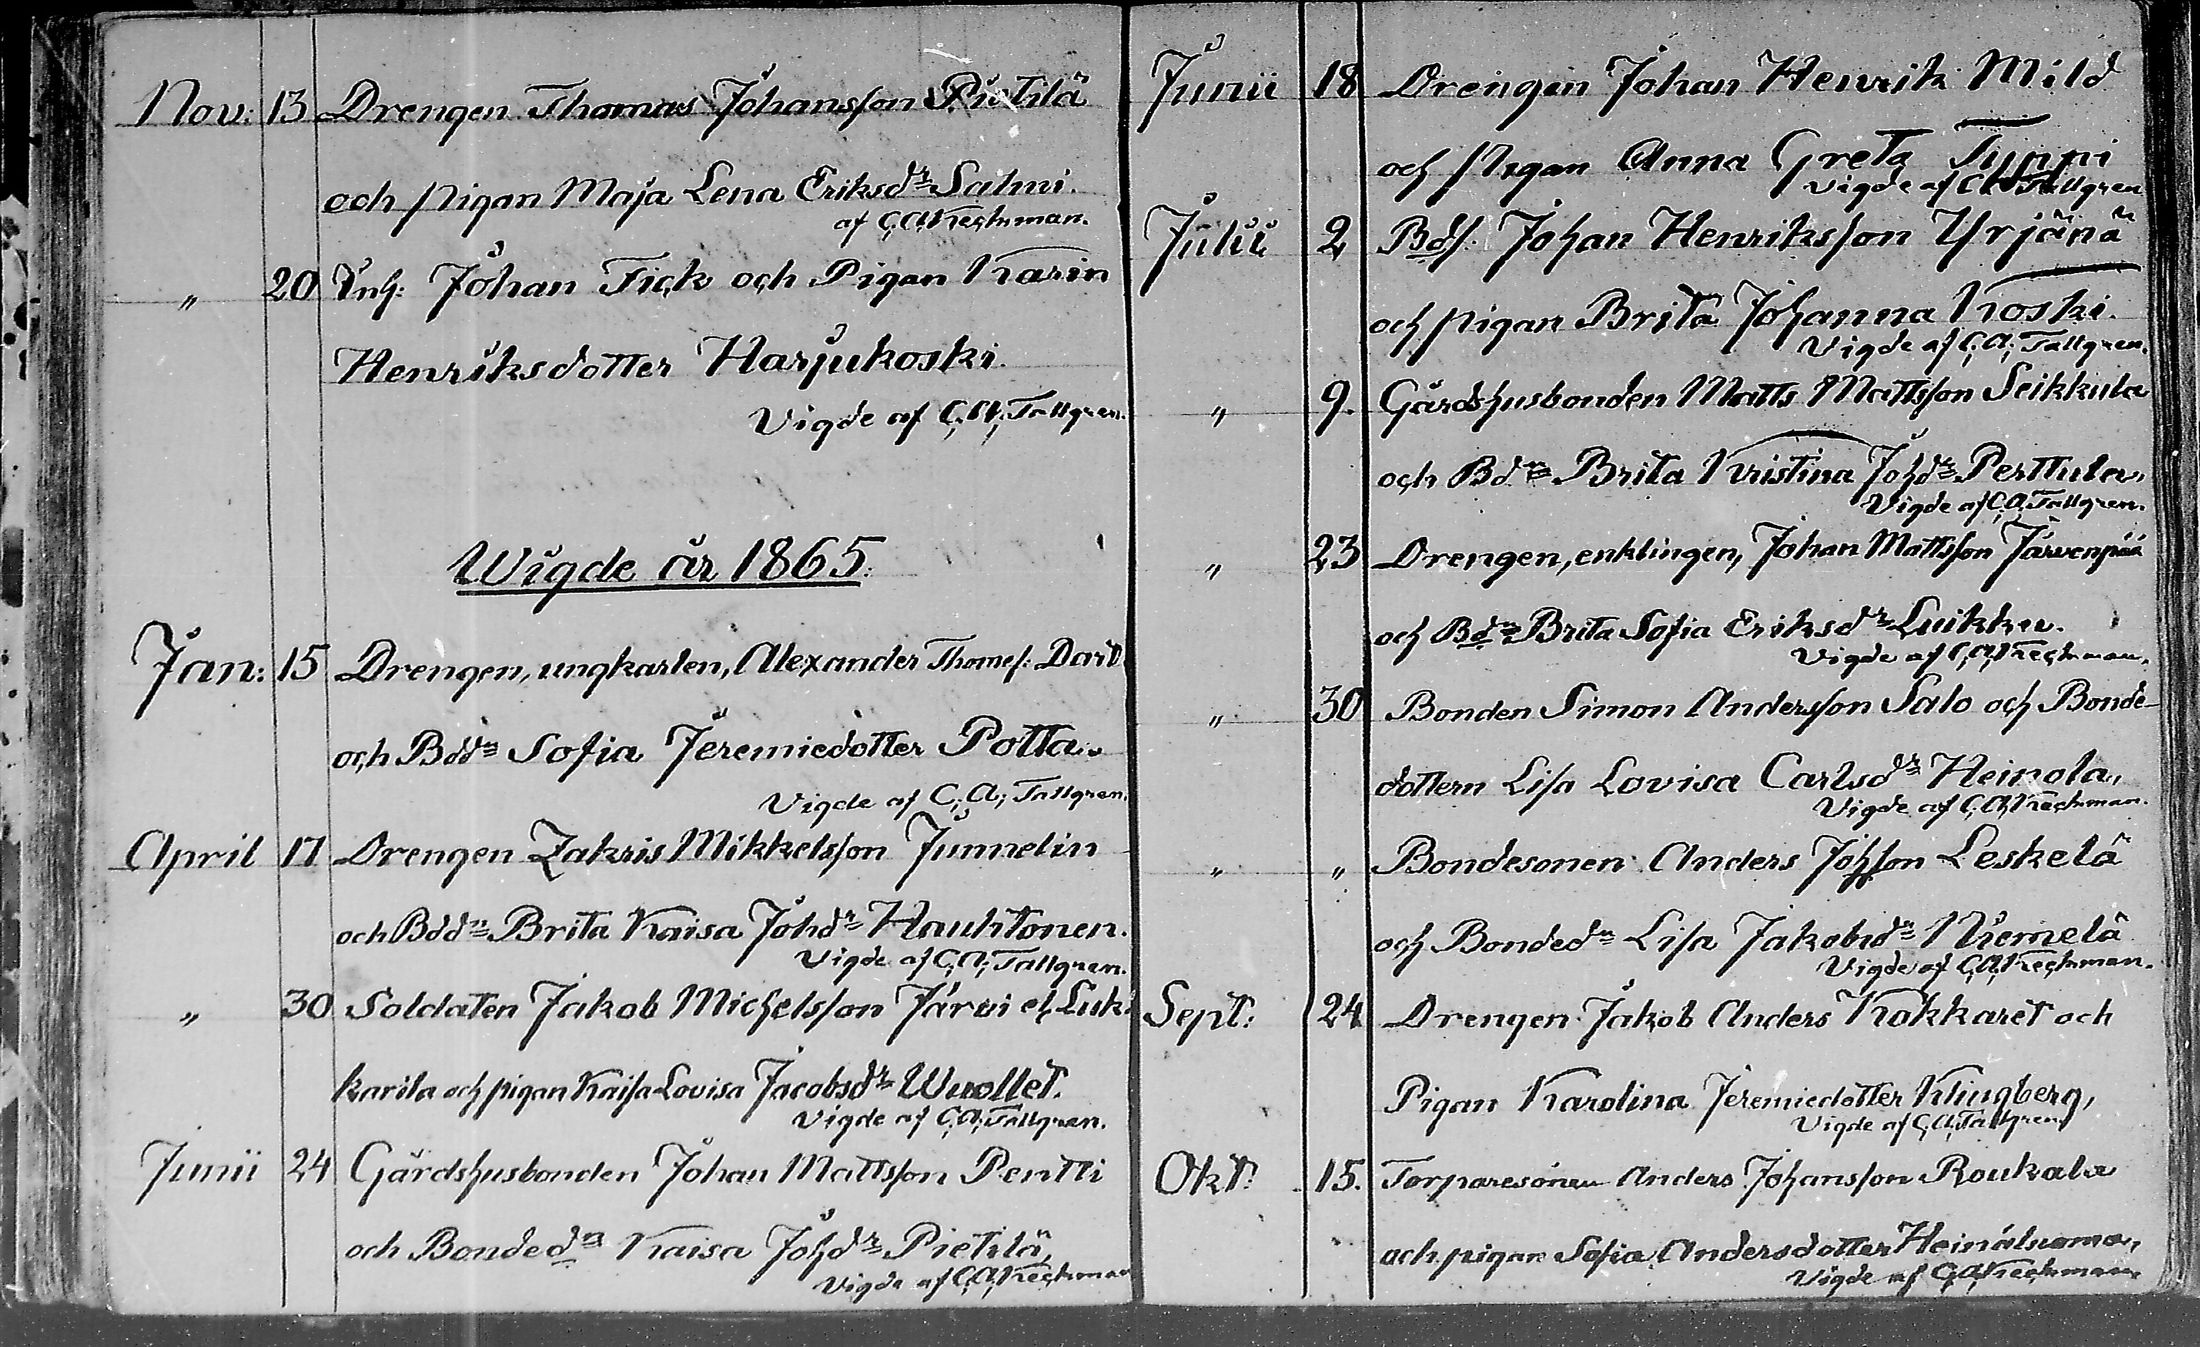 Nov: 13 Drengen Thomas Johansson Pietilä
och pigan Maja Lena Eriksdr Salmi.
af C. A. Keckman.
" 20 Inh: Johan Fick och Pigan Karin
Henriksdotter Harjukoski.
Vigde af C. A. Tallgren.
Wigde år 1865.
Jan: 15 Drengen, ungkarlen, Alexander Thomes: David
och Bddn Sofia Jeremiedotter Potta.
Vigde af C. A. Tallgren.
April 17 Drengen Zakris Mikkelsson Junnelin
och Bddn Brita Kaisa Johdr Hauhtonen.
Vigde af C. A. Tallgren.
" 30 Soldaten Jakob Michelsson Järvi el. Luk
karila och pigan Kaisa Lovisa Jacobsdr Wuollet.
Vigde af C. A. Tallgren.
Junii 24 Gårdshusbonden Johan Mattsson Pentti
och Bondedn Kaisa Johdr Pietilä,
Vigde af C. A. Keckman
Junii 18 Drengen Johan Henrik Mild
och Pigan Anna Greta Typpi
Vigde af C A Tallgren
Julii 2 Bds. Johan Henriksson Yrjänä
och pigan Brita Johanna Koski.
Vigde af C. A. Tallgren.
" 9. Gårdshusbonden Matts Mattsson Seikkula
och Bdn Brita Kristina Johdr Perttula,
Vigde af C. A. Tallgren.
" 23 Drengen, enklingen, Johan Mattsson Järvenpää
och Bdn Brita Sofia Eriksdr Luikku.
Vigde af C. A. Keckman.
" 30 Bonden Simon Andersson Salo och Bonde
dottern Lisa Lovisa Carlsdr Heinola,
Vigde af C. A. Keckman.
" " Bondesonen Anders Johsson Leskelä
och Bondedn Lisa Jakobsdr Niemelä
Vigde af C. A. Keckman.
Sept: 24 Drengen Jakob Anders Kokkaret och
Pigan Karolina Jeremiedotter Klingberg,
Vigde af C. A. Tallgren
Okt: 15. Torparesonen Anders Johansson Roukala
och pigan Sofia Andersdotter Heinäluoma,
Vigde af C. A. Keckman.